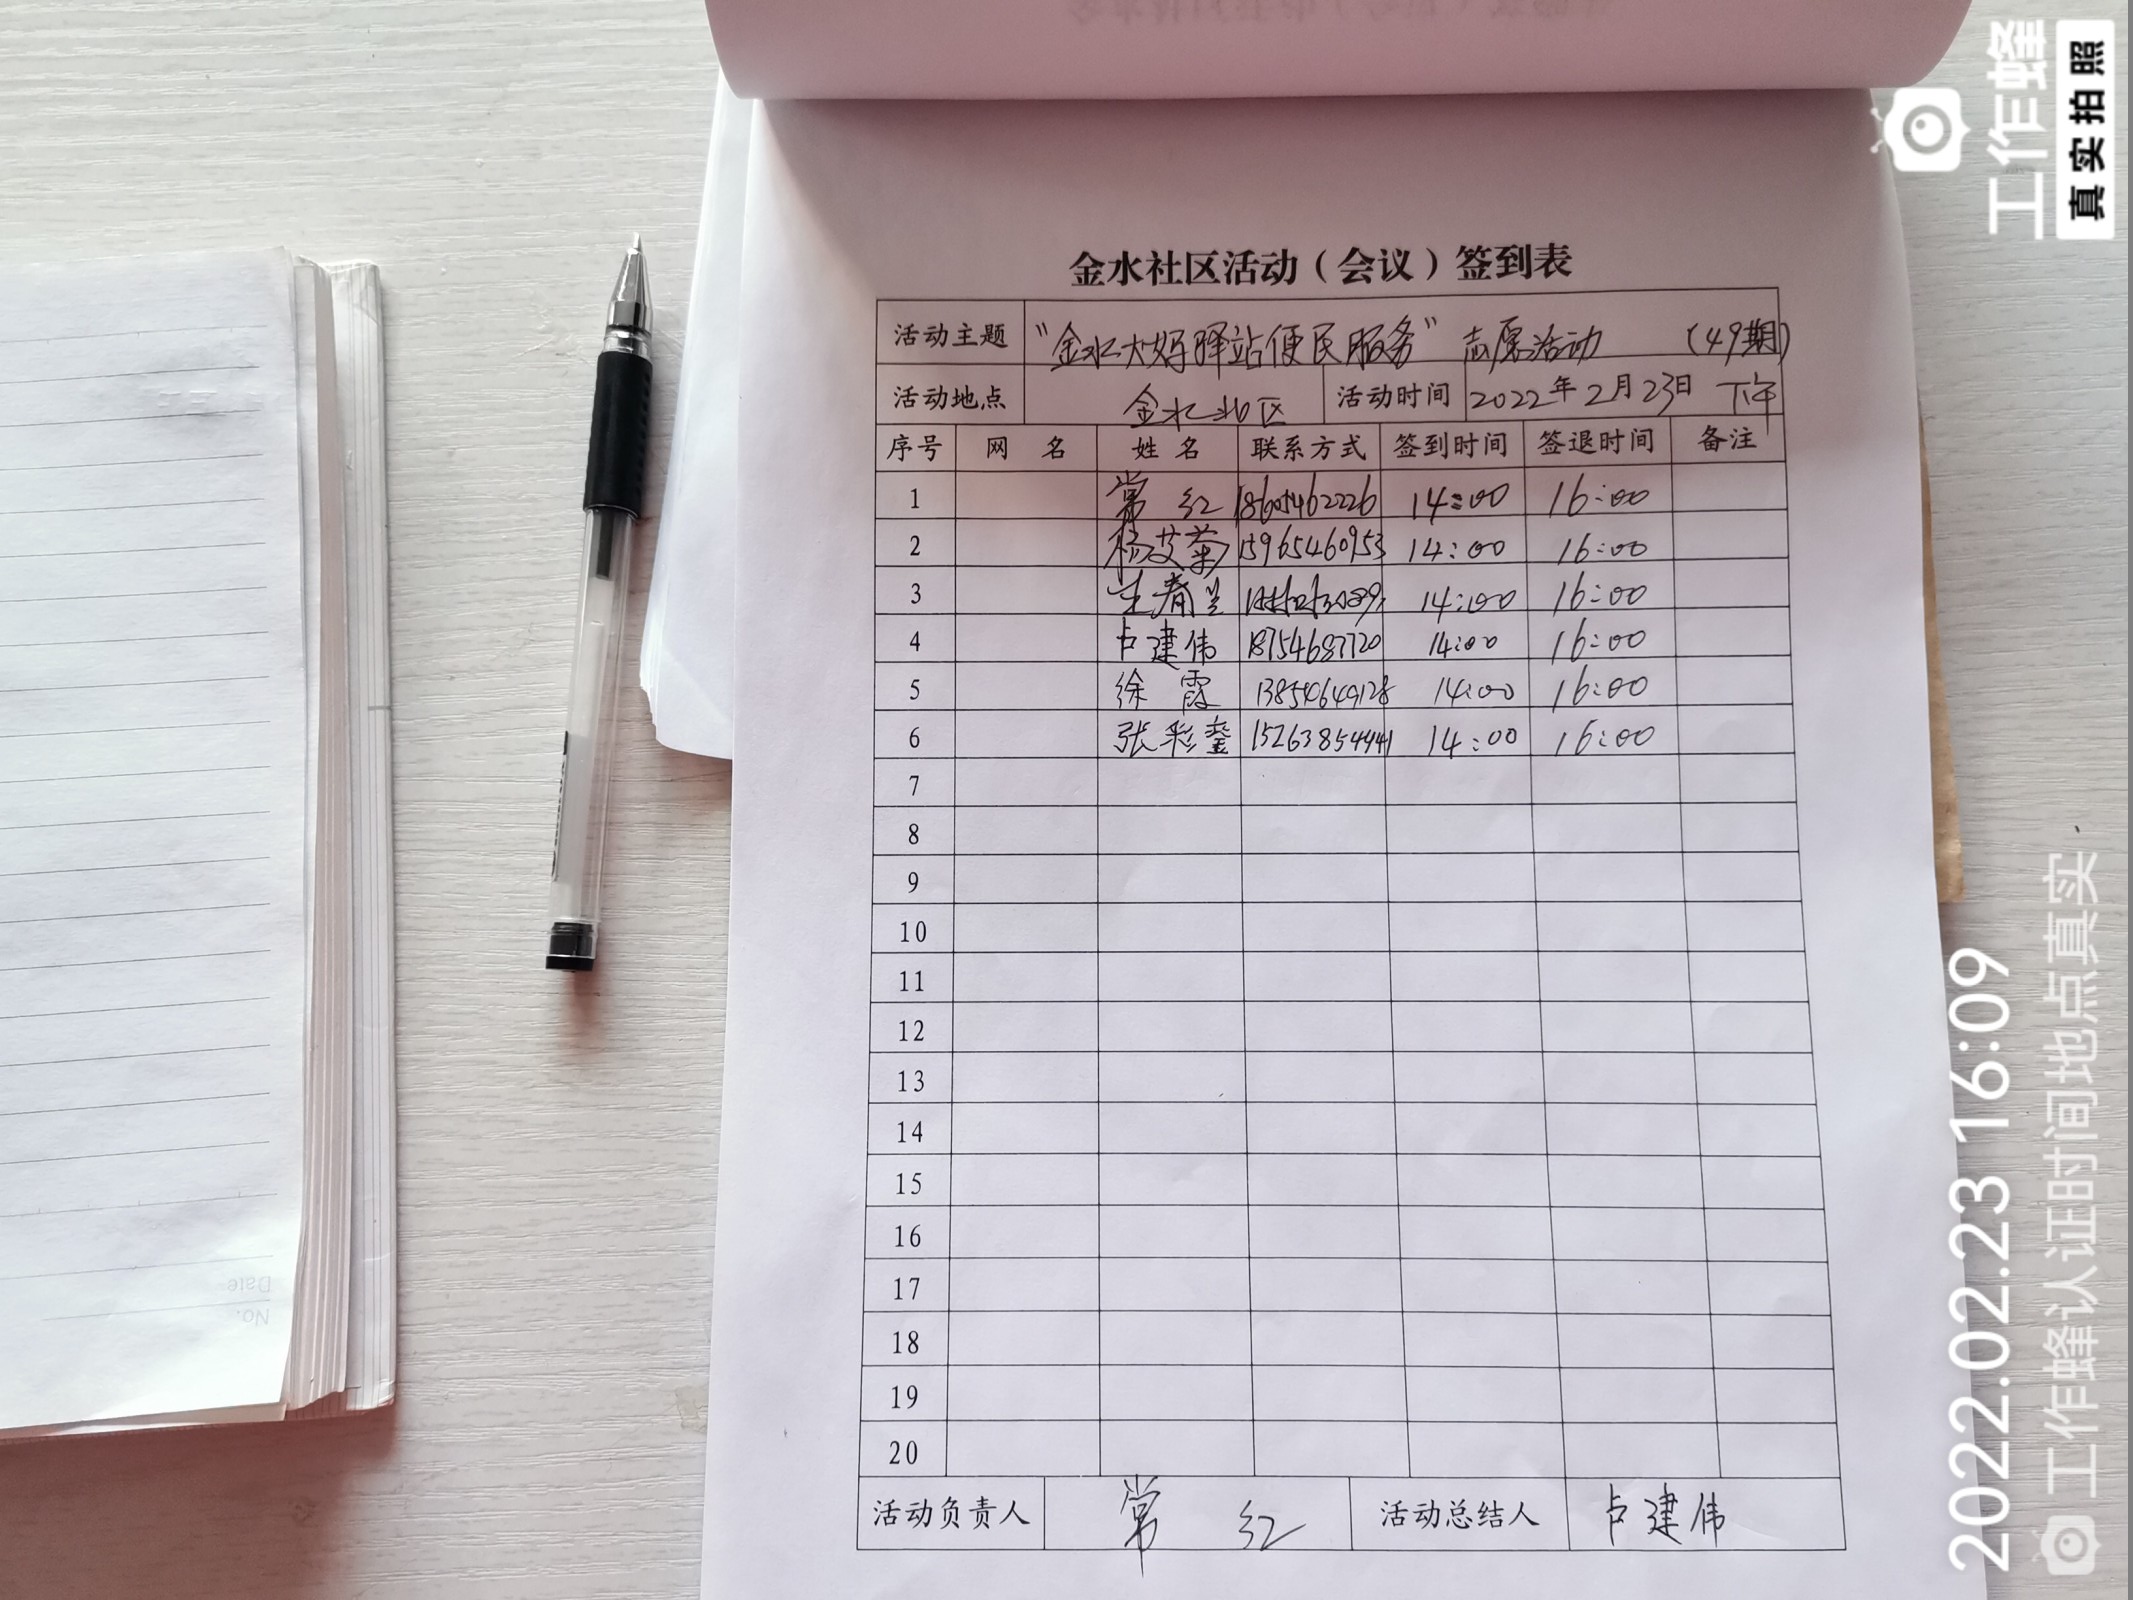 金水社区活动（会议）签到表
活动主题 “金水大妈驿站便民服务”志愿活动 （49期）
活动地点 金水北区 活动时间 2022年2月23日 下午
序号 网 名 姓 名 联系方式 签到时间 签退时间 备注
1 常 红 18605462226 14:00 16:00
2 杨艾菊 15965460953 14:00 16:00
3 王春兰 14:00 16:00
4 卢建伟 18754687720 14:00 16:00
5 徐 霞 13854649128 14:00 16:00
6 张彩銮 15263854441 14:00 16:00
7
8
9
10
11
12
13
14
15
16
17
18
19
20
活动负责人 常 红 活动总结人 卢建伟
Date
No.
工作蜂
真实拍照
2022.02.23 16:09
工作蜂认证时间地点真实